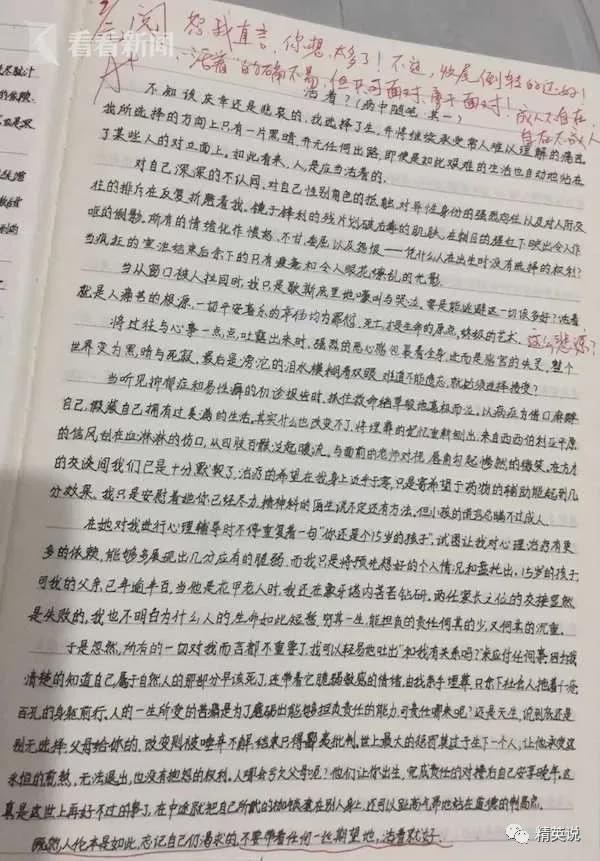 看看新闻
已阅 恕我直言,你想太多了!不过,收尾倒转的还好!
A+ "活着"的确不易,但不可面对,勇于面对!
成人不自在,
自在不成人
活着?(病中随笔 其一)
不知该庆幸还是悲哀的,我选择了生,并将继续承受常人难以理解的痛苦
我所选择的方向上只有一片黑暗,并无任何出路,即使是如此艰难的生活也自动地站在
了某些人的对立面上。如此看来,人,是应当活着的。
对自己深深的不认同,对自己性别角色的抵触,对异性身份的强烈向往以及对人际交
往的排斥在反复折磨着我。镜子锋利的残片划破
呕的倒影。所有的情绪化作愤怒、不甘、委屈以及怨恨——凭什么人在出生时没有选择的权利?
当疯狂的宣泄结束后余下的只有疲惫和令人眼花缭乱的光影。
当从窗口被人拦回时,我只是歇斯底里地嚎叫与哭泣。要是能逃避这一切该多好?活着
就是人痛苦的根源,一切平安喜乐的幸福均为罪恶,死亡才是生命的原点,终极的艺术。 这么悲哀?
将过往与心事一点点吐露出来时,强烈的恶心感包裹着全身,进而是感官的失灵,整个
世界变为黑暗与死寂,最后是滂沱的泪水模糊着双眼,难道不能遗忘,就必须选择接受?
当听见抑郁症和易性癖的初诊报告时,抓住救命稻草般地喜极而泣。以病症为借口麻醉
自己,假装自己拥有过美满的生活。其实什么也改变不了,将埋葬的记忆重新刨出,来自西西伯利亚平原
的信风刮在血淋淋的伤口,从四肢百骸泛起暖流。与面前的老师对视,唇角勾起惨然的微笑,在方才
的交谈间我们已是十分默契了,治疗的希望在我身上近乎于零,只是寄希望于药物的辅助能起到几
分效果。我只是安慰着她你已经尽力,精神科的医生说不定还有方法,但小孩的谎言总瞒不过成人。
在她对我进行心理辅导时不停重复着一句"你还是个15岁的孩子",试图让我对心理治疗有更
多的依赖,能够多展现出几分应有的脆弱。而我只是将预先想好的个人情况和盘托出,15岁的孩子
可我的父亲,已年逾半百,当他是花甲老人时,我还在象牙塔内苦苦钻研。两任家长之位的交接显然
是失败的,我也不明白为什么人的生命如此短暂,穷其一生,能担负的责任何其的少,又何其的沉重。
于是忽然,所有的一切对我而言都不重要了,我可以轻易地吐出"和我有关系吗?"来应付任何事,因为我
清楚的知道自己属于自然人的那部分早该死了,连带着它脆弱敏感的情绪,由我亲手埋葬,只余下社会人拖着千疮
百孔的身躯前行。人的一生所受的苦痛是为了磨砺出能够担负责任的能力,可责任哪来呢?还是天生,说到底还是
别无选择:父母给你的,改变则被唾弃不解,结果只得 批判,世上最大的惩罚莫过于生下一个人,让他承受这
永恒的煎熬,无法退出,也没有抱怨的权利。人哪会亏欠父母呢?他们让你出生,完成责任的对接后自己安享晚年,这
真是这世上再好不过的事了,在中途就把自己所戴的枷锁套在别人身上,还可以趾高气昂地站在道德的制高点。
既然人伦本是如此,忘记自己所渴求的,不要带着任何一丝期望地,活着就好。
精英说